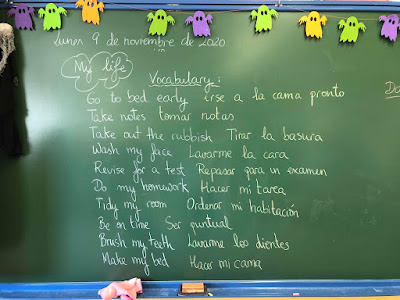 Lunes 9 de noviembre de 2020
My life
Vocabulary:
Go to bed early irse a la cama pronto
Take notes tomar notas
Take out the rubbish Tirar la basura
Wash my face Lavarme la cara
Revise for a test Repasar para un examen
Do my homework Hacer mi tarea
Tidy my room Ordenar mi habitación
Be on time Ser puntual
Brush my teeth Lavarme los dientes
Make my bed Hacer mi cama